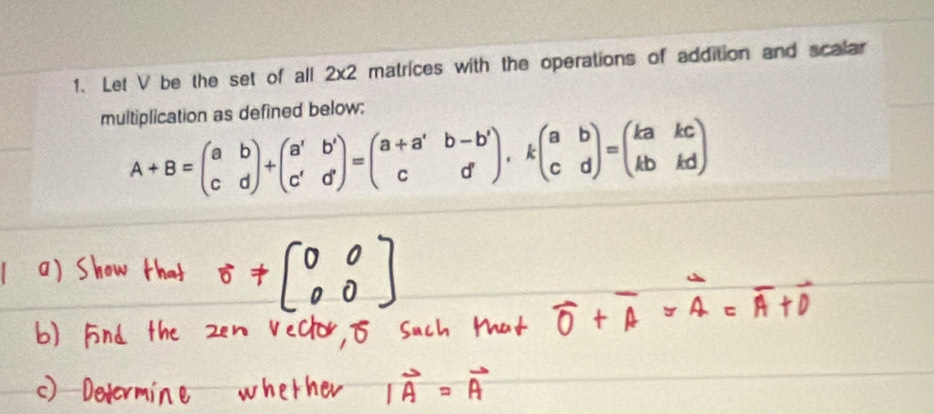 1. Let V be the set of all 2x2 matrices with the operations of addition and scalar
multiplication as defined below:
A + B = (a b; c d) + (a' b'; c' d') = (a + a' b − b'; c d'), k(a b; c d) = (ka kc; kb kd)
1 a) Show that 0⃗ ≠ [0 0; 0 0]
b) Find the zero vector, 0⃗ such that 0⃗ + A⃗ = A⃗ = A⃗ + 0⃗
c) Determine whether 1A⃗ = A⃗